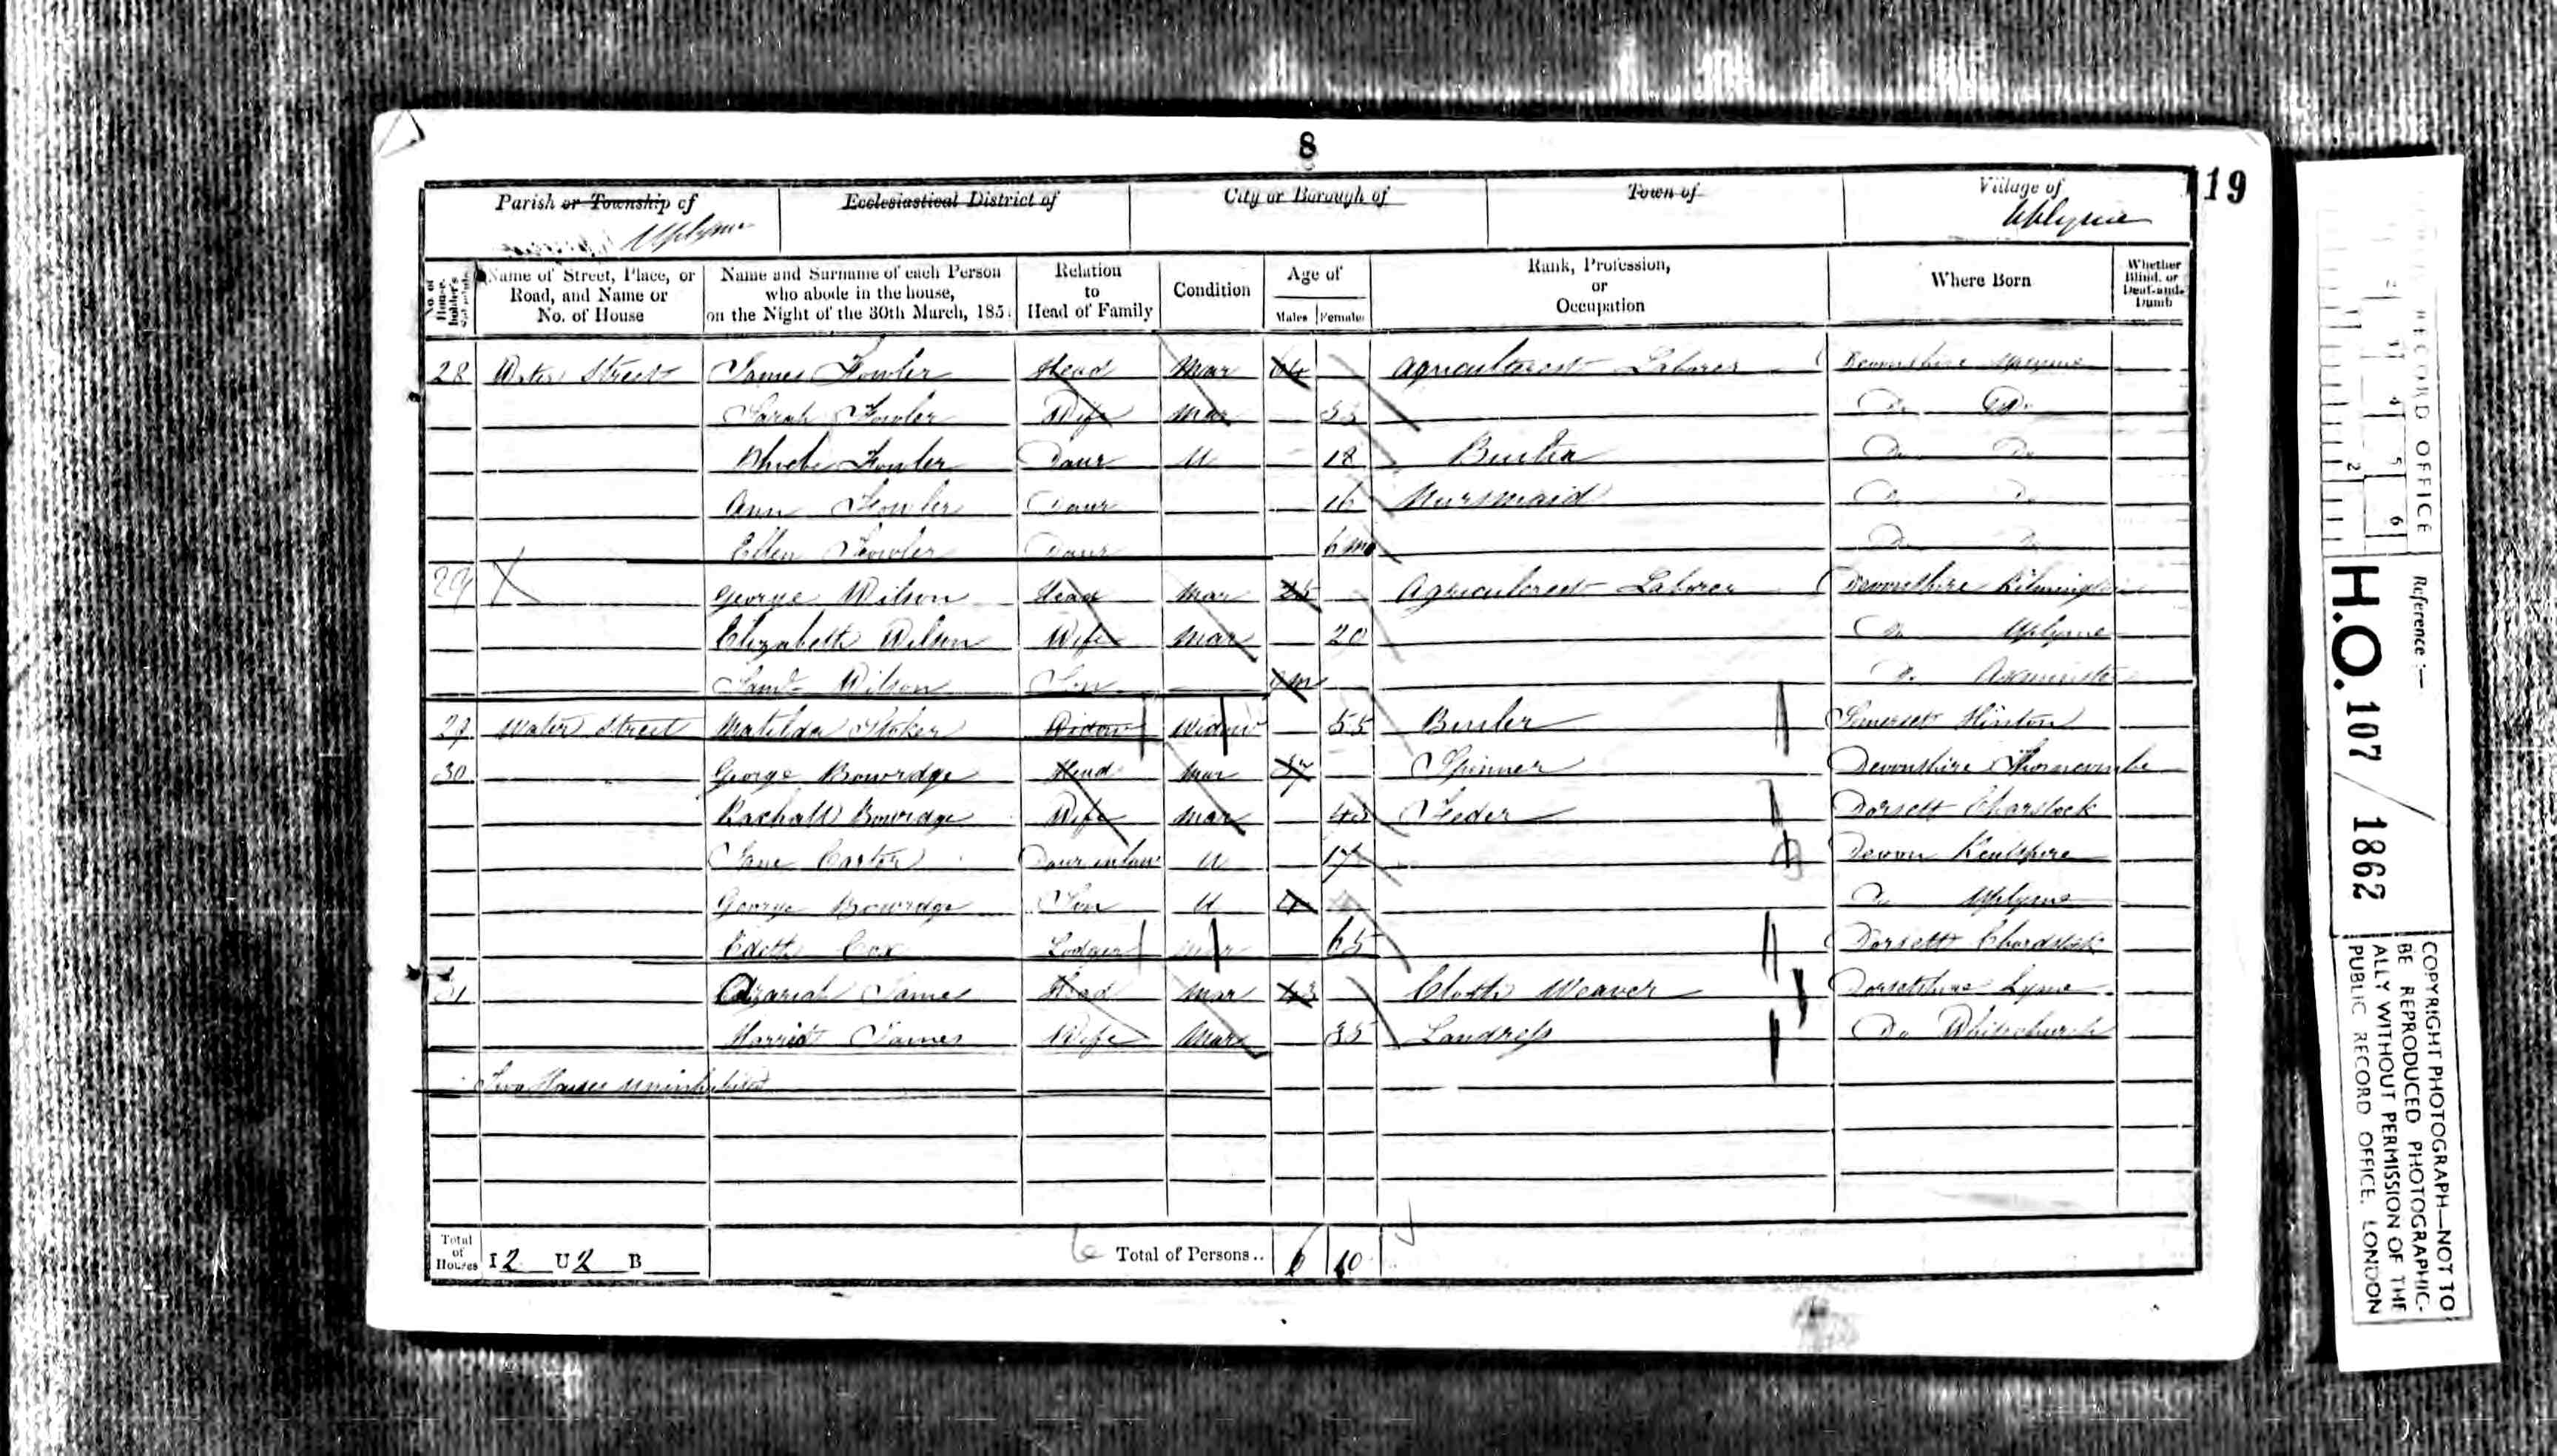 8
19
Parish or Township of Uplyme
Ecclesiastical District of
City or Borough of
Town of
Village of Uplyme
No. of House-holder's Schedule
Name of Street, Place, or Road, and Name or No. of House
Name and Surname of each Person who abode in the house, on the Night of the 30th March, 185
Relation to Head of Family
Condition
Age of
Males Females
Rank, Profession, or Occupation
Where Born
Whether Blind, or Deaf-and-Dumb
28 Water Street James Fowler Head Mar 64 Agricultural Laborer Devonshire Uplyme
Sarah Fowler Wife Mar 53 Do Do
Phoebe Fowler Daur U 18 Do Do
Ann Fowler Daur 16 Nursmaid Do Do
Ellen Fowler Daur 6 mo Do Do
29 X George Wilson Head Mar 25 Agricultural Laborer Devonshire Kilmington
Elizabeth Wilson Wife Mar 20 Do Uplyme
Saml Wilson Son Do Axminster
29 Water Street Matilda Stoker Widow Widow 55 Somerset Hinton
30 George Bowrdge Head Mar 37 Spinner Devonshire Thorncombe
Rachall Bowrdge Wife Mar 43 Feder Dorsett Charstock
Jane Carter Daur inlaw U 17 Devon
George Bowrdge Son U 4 Do Uplyme
Edith Cox Lodger Mar 65 Dorsett Chardstock
31 Azariah James Head Mar 43 Cloth Weaver Dorsetshire Lyme
Harriet James Wife Mar 35 Landress Do Whitechurch
Two Houses uninhabited
Total of Houses I 2 U 2 B
6 Total of Persons.. 6 10
RECORD OFFICE
1 2 3 4 5 6
Reference :—
H.O. 107 / 1862
COPYRIGHT PHOTOGRAPH—NOT TO
BE REPRODUCED PHOTOGRAPHIC-
ALLY WITHOUT PERMISSION OF THE
PUBLIC RECORD OFFICE, LONDON